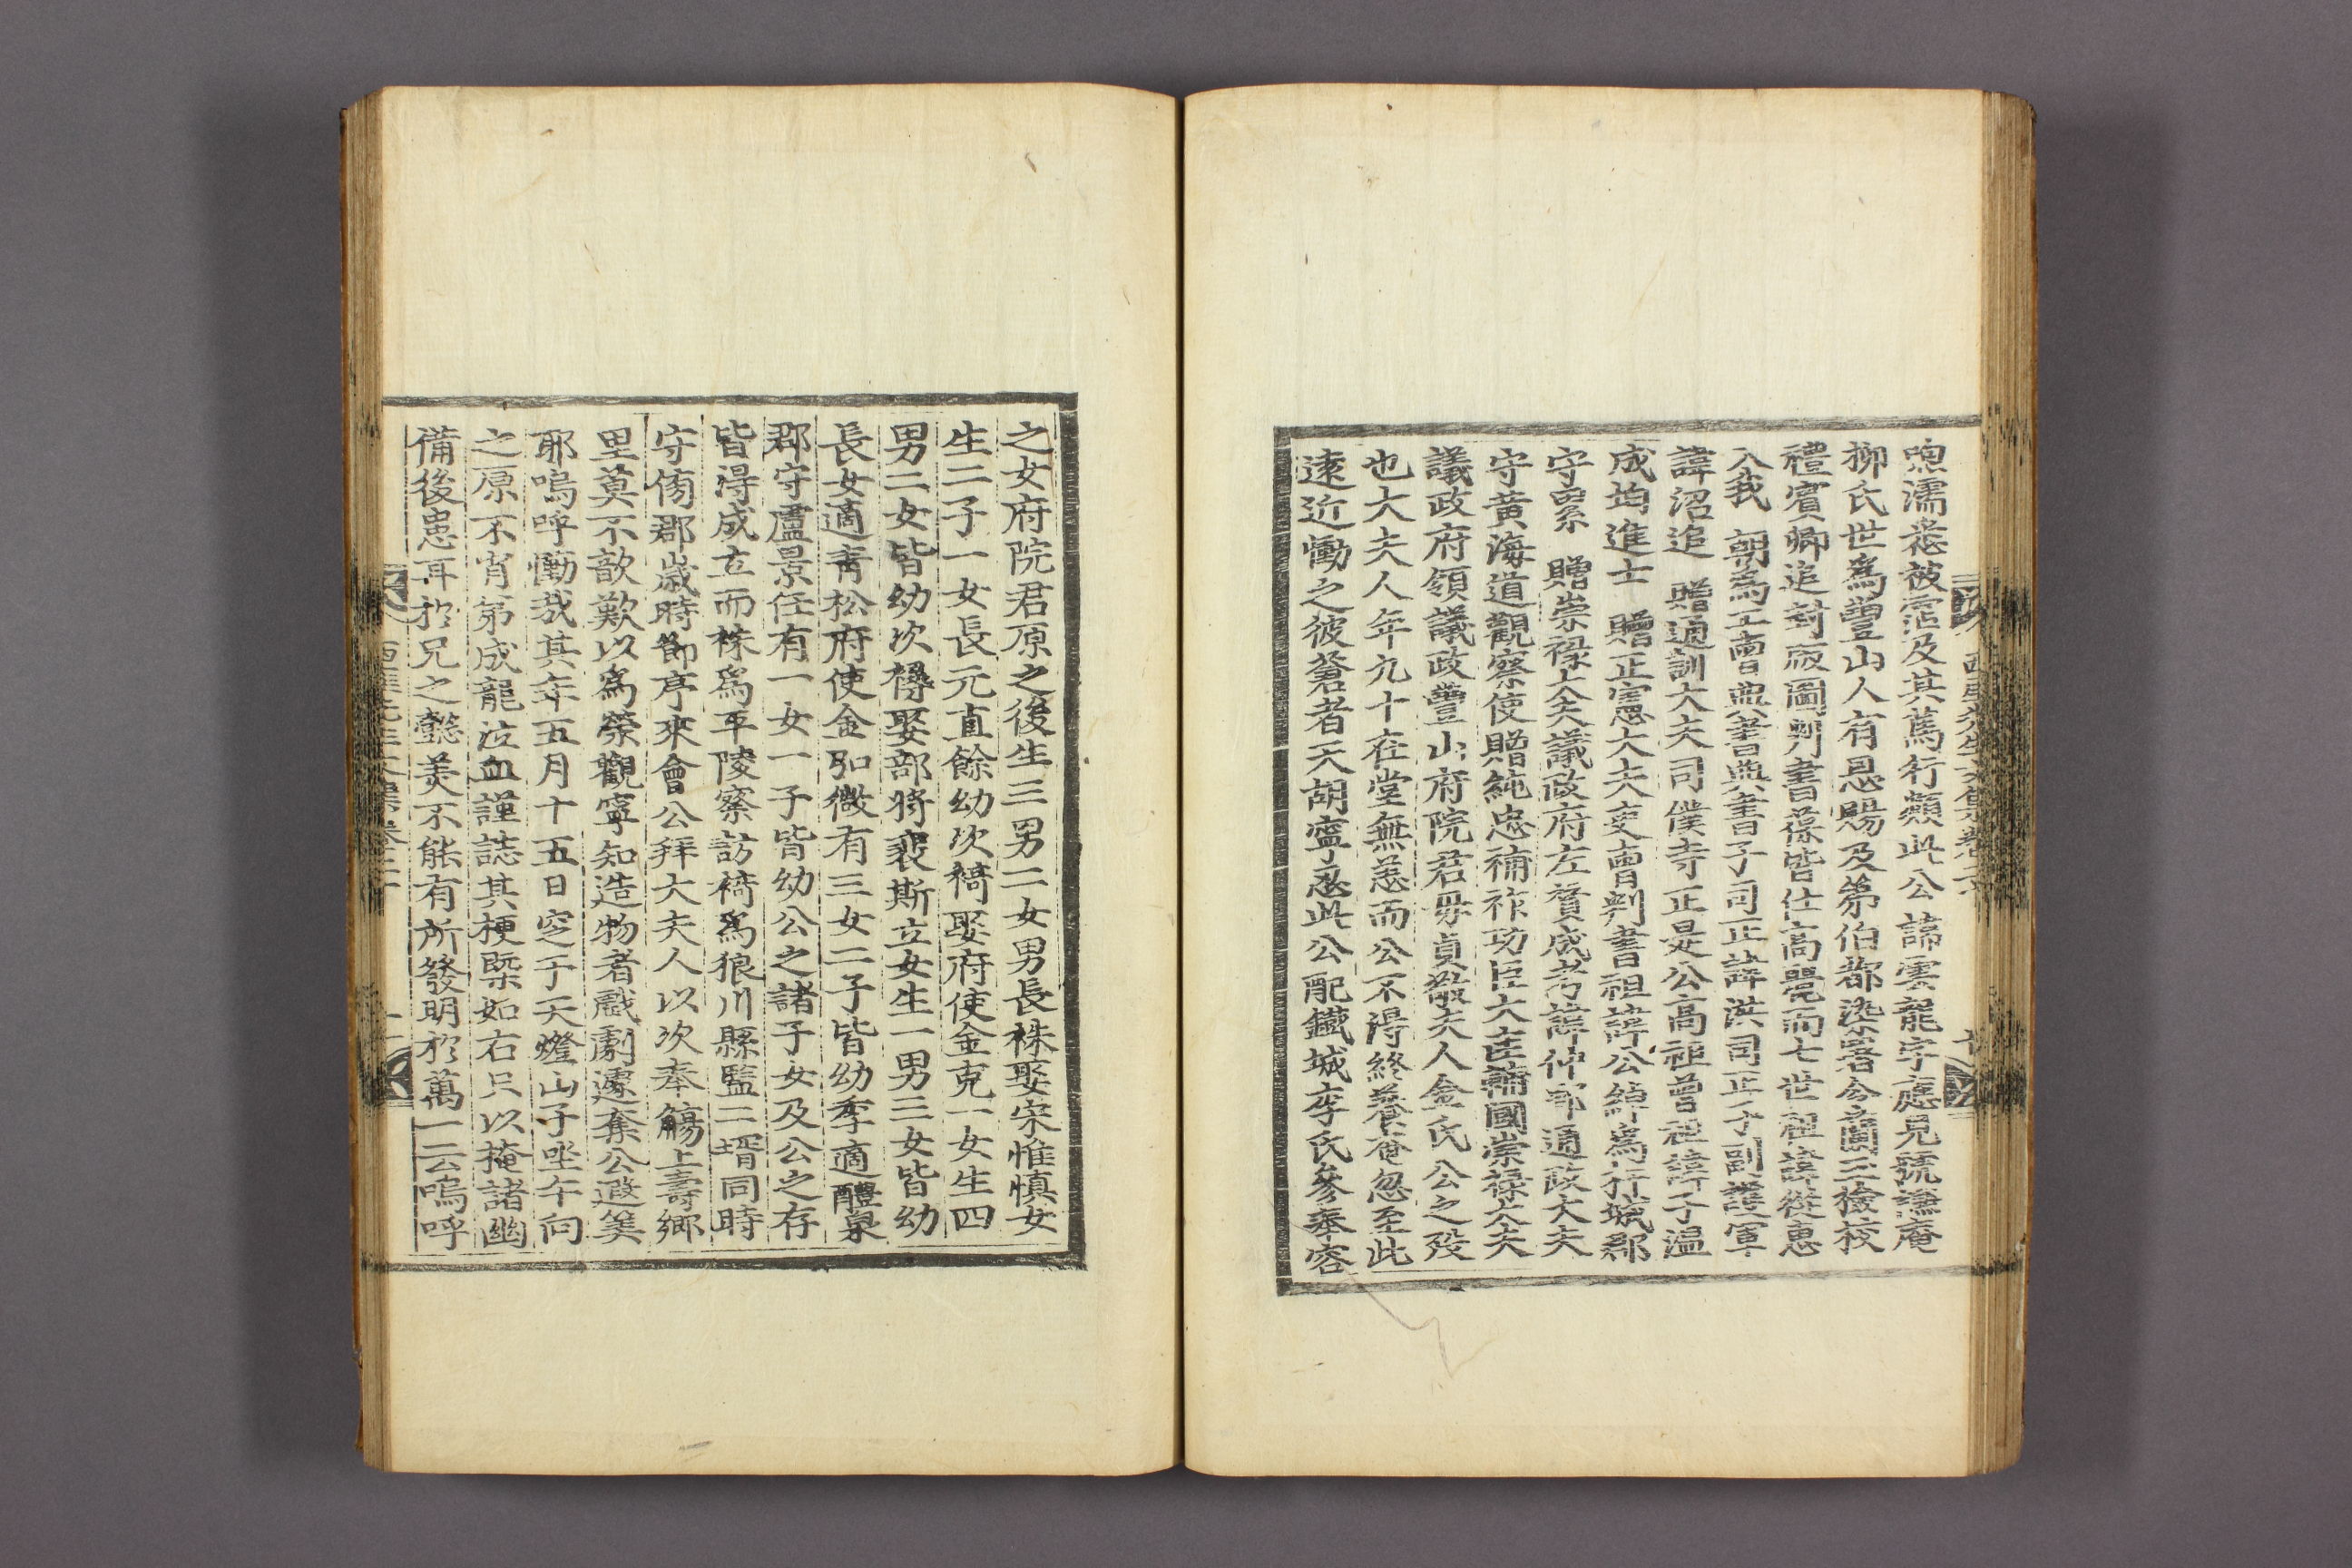 喣濡悉被霑及其篤行類此公諱雲龍字應見號謙庵
柳氏世爲豐山人有恩賜及第伯都染署令蘭玉檢校
禮賓卿追封版圖判書葆皆仕高麗而七世祖諱從惠
入我 朝爲工曹典書典書子司正諱洪司正子副護軍
諱沼追 贈通訓大夫司僕寺正是公高祖曾祖諱子溫
成均進士 贈正憲大夫吏曹判書祖諱公綽爲杆城郡
守累 贈崇祿大夫議政府左贊成考諱仲郢通政大夫
守黃海道觀察使贈純忠補祚功臣大匡輔國崇祿大夫
議政府領議政豐山府院君毋貞敬夫人金氏公之歿
也大夫人年九十在堂無恙而公不得終養奄忽至此
遠近慟之彼蒼者天胡寧忍此公配鐵城李氏參奉容
之女府院君原之後生三男二女男長袾娶宋惟愼女
生二子一女長元直餘幼次裿娶府使金克一女生四
男二女皆幼次襑娶部將裵斯立女生一男三女皆幼
長女適靑松府使金弘微有三女二子皆幼季適醴泉
郡守盧景任有一女一子皆幼公之諸子女及公之存
皆得成立而袾爲平陵察訪裿爲狼川縣監二壻同時
守傍郡歲時節序來會公拜大夫人以次奉觴上壽鄕
里莫不歆歎以爲榮觀寧知造物者戱劇遽奪公遐筭
耶嗚呼慟哉其年五月十五日窆于天燈山子坐午向
之原不宵弟成龍泣血謹誌其梗槩如右只以掩諸幽
備後患耳於兄之懿美不能有所發明於萬一云嗚呼
西厓先生文集卷二十
十一